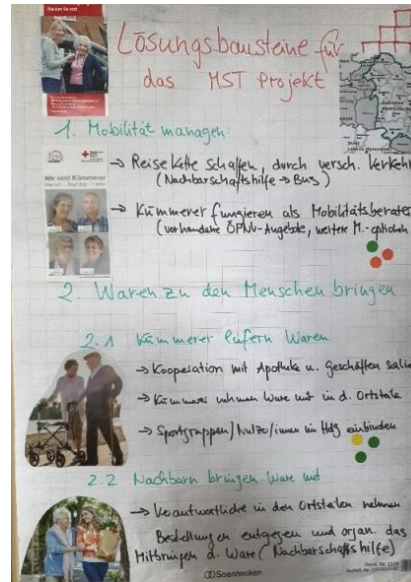 Lösungsbausteine für
das MST Projekt
1. Mobilität managen:
→ Reisekette schaffen, durch versch. Verkehr
(Nachbarschaftshilfe → Bus)
Wir sind Kümmerer
→ Kümmerer fungieren als Mobilitätsberater
(vorhandene ÖPNV-Angebote, weitere M.-optionen
2. Waren zu den Menschen bringen
2.1 Kümmerer liefern Waren
→ Kooperation mit Apotheke u. Geschäften
→ Kümmerer nehmen Ware mit in d. Ortsteile
→ Sportgruppen/Nutzer/innen im Hdg einbinden
2.2 Nachbarn bringen Ware mit
→ Verantwortliche in den Ortsteilen nehmen
Bestellungen entgegen und organ. das
Mitbringen d. Ware (Nachbarschaftshilfe)
Soennecken